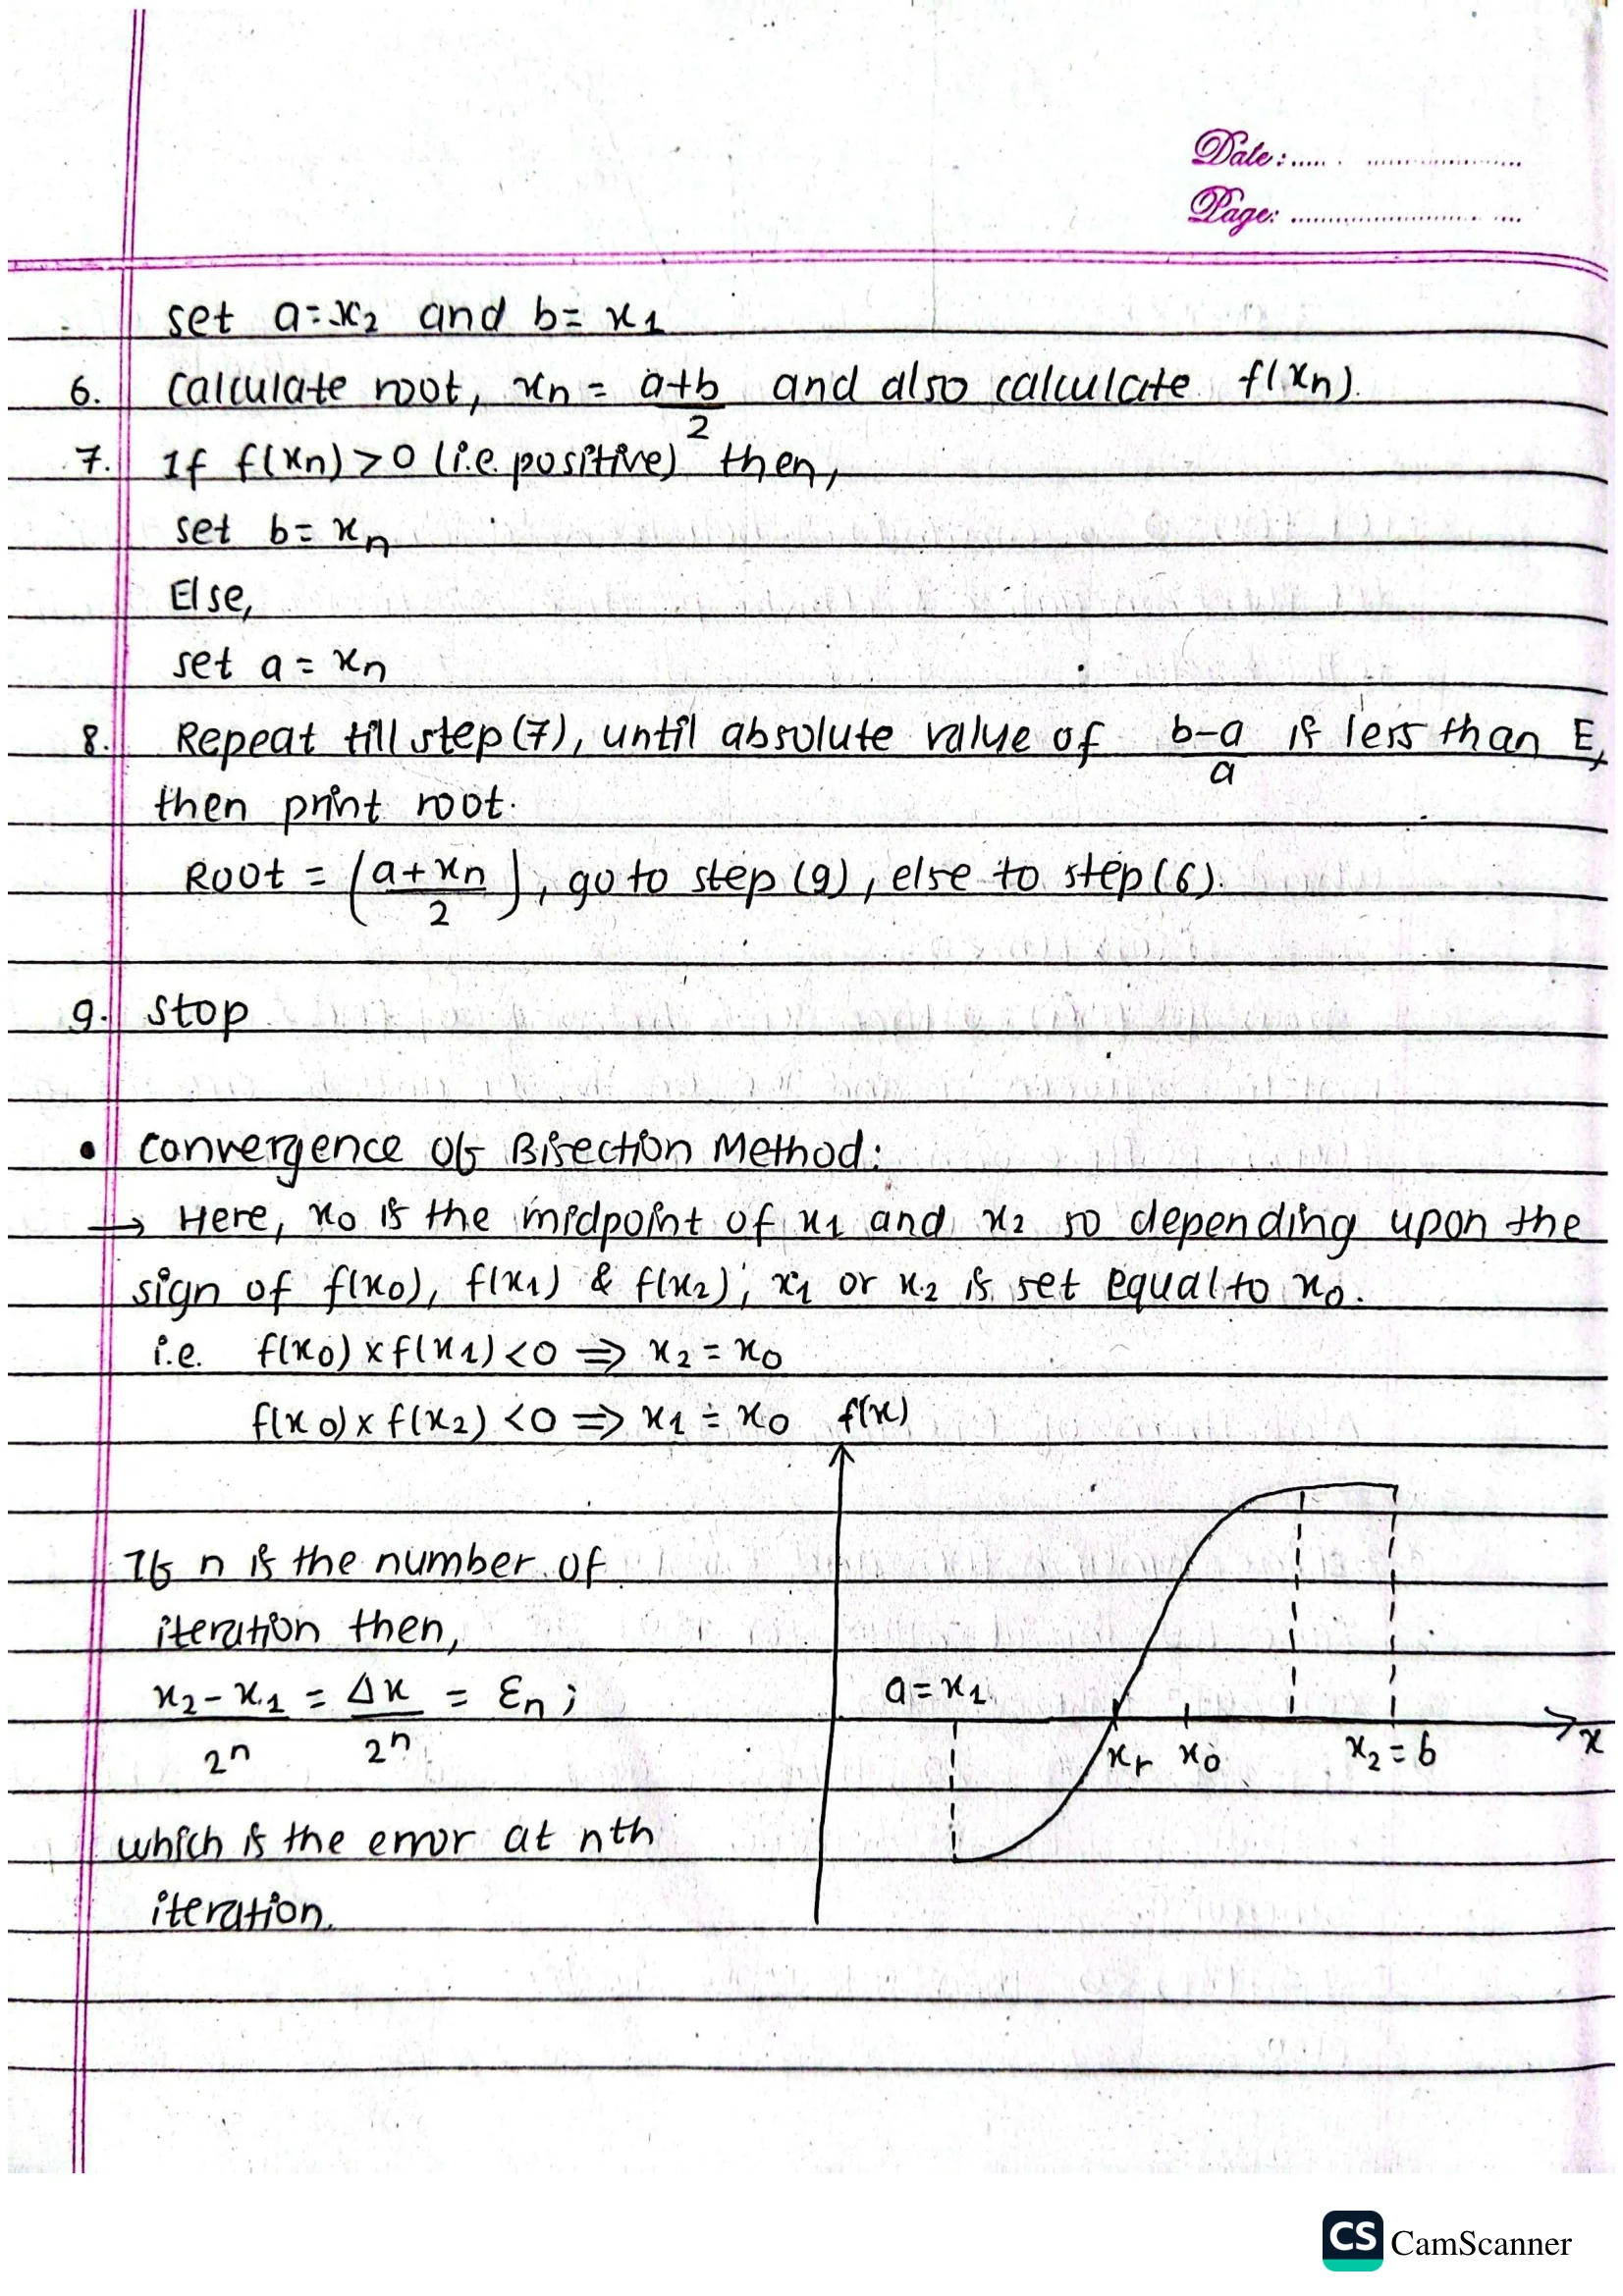 Date: ..... ......................
Page: ..............................
set a = x₂ and b = x₁
6. Calculate root, xn = (a+b)/2 and also calculate f(xn).
7. If f(xn) > 0 (i.e. positive) then,
set b = xn
Else,
set a = xn
8. Repeat till step (7), until absolute value of (b-a)/a is less than E,
then print root.
Root = ((a + xn)/2), go to step (9), else to step (6).
9. Stop
• Convergence of Bisection Method:
→ Here, x₀ is the midpoint of x₁ and x₂ so depending upon the
sign of f(x₀), f(x₁) & f(x₂); x₁ or x₂ is set equal to x₀.
i.e. f(x₀) × f(x₁) < 0 ⇒ x₂ = x₀
f(x₀) × f(x₂) < 0 ⇒ x₁ = x₀
f(x)
If n is the number of
iteration then,
(x₂ - x₁)/2ⁿ = Δx/2ⁿ = εn;
which is the error at nth
iteration.
a = x₁
xr x₀ x₂ = b x
CS CamScanner